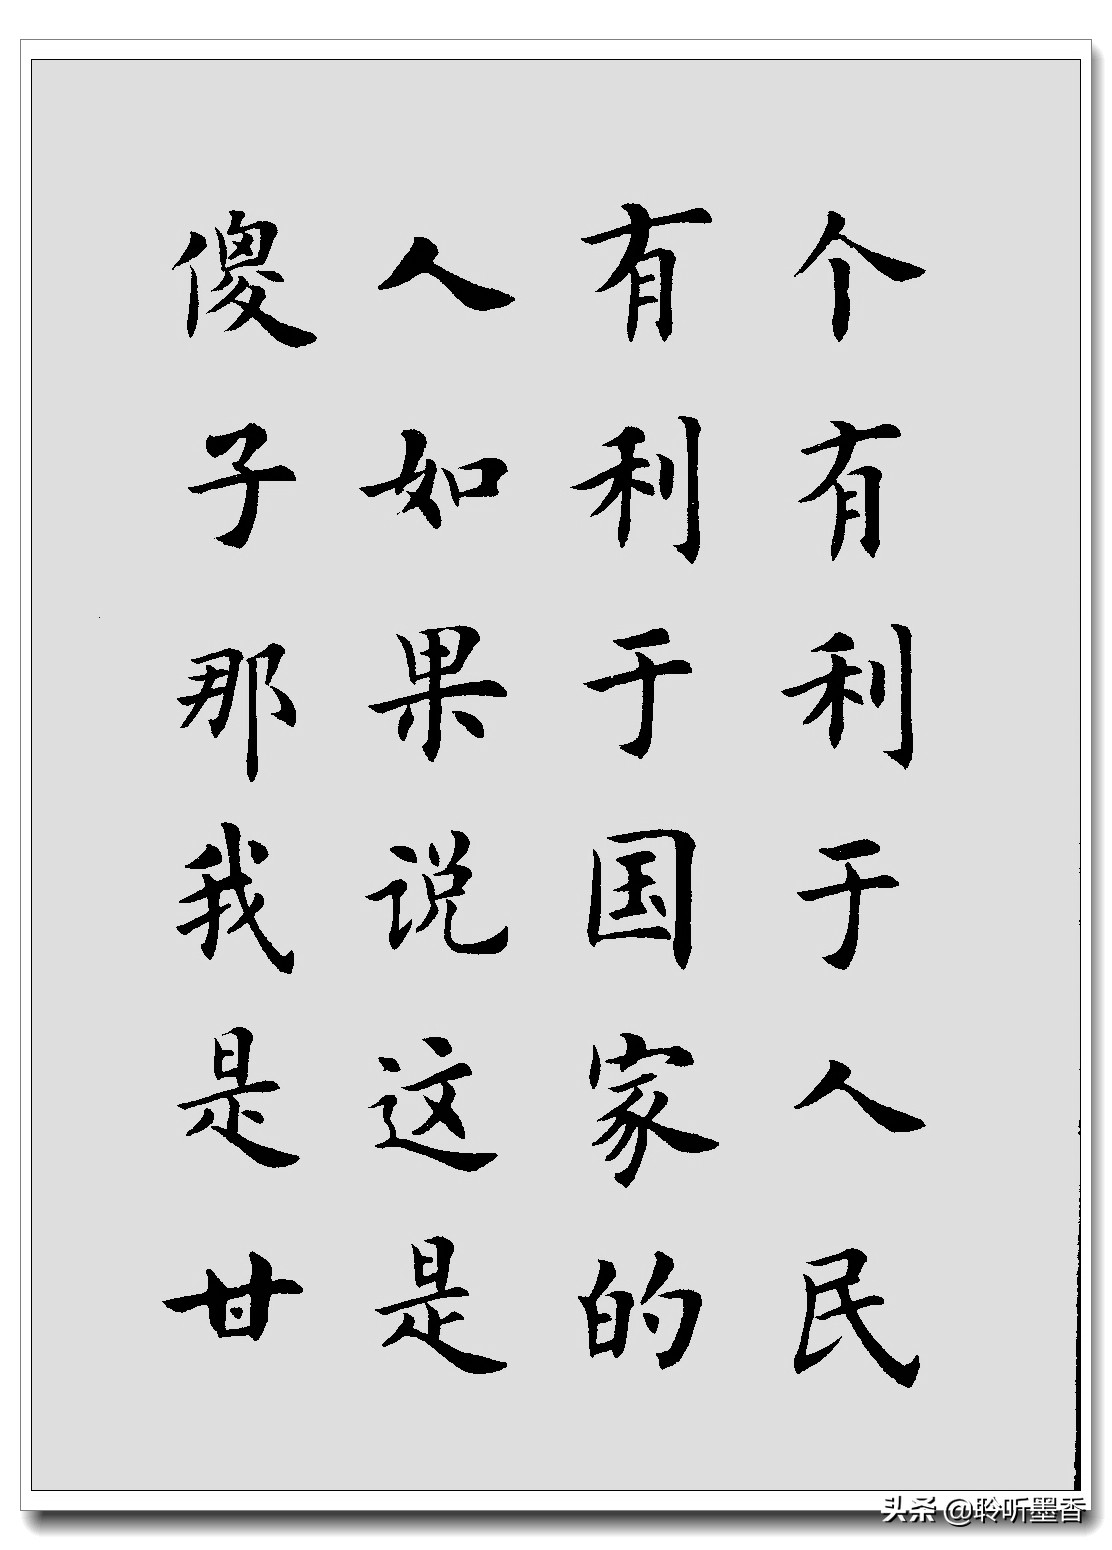 个有利于人民
有利于国家的
人如果说这是
傻子那我是甘
头条 @聆听墨香